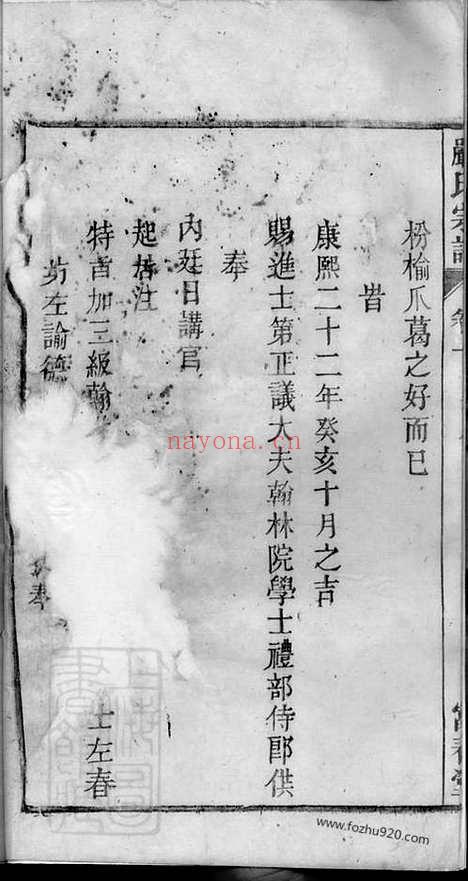 嚴氏宗譜
枌榆爪葛之好而已
旹
康熙二十二年癸亥十月之吉
賜進士第正議大夫翰林院學士禮部侍郎供
奉
內廷日講官
起居注
特旨加三級翰
士左春
坊左諭德
奉
nayona.cn
www.fozhu920.com